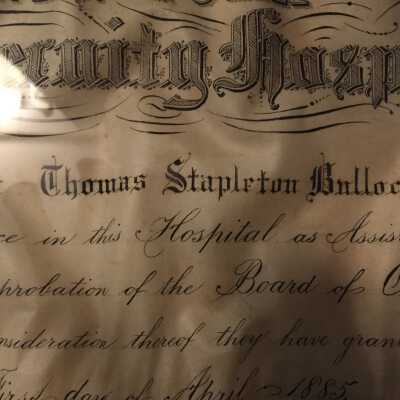 ernity Hosp
Thomas Stapleton Bulloc
ce in this Hospital as Assis
probation of the Board of
nsideration thereof they have gran
First day of April 1885